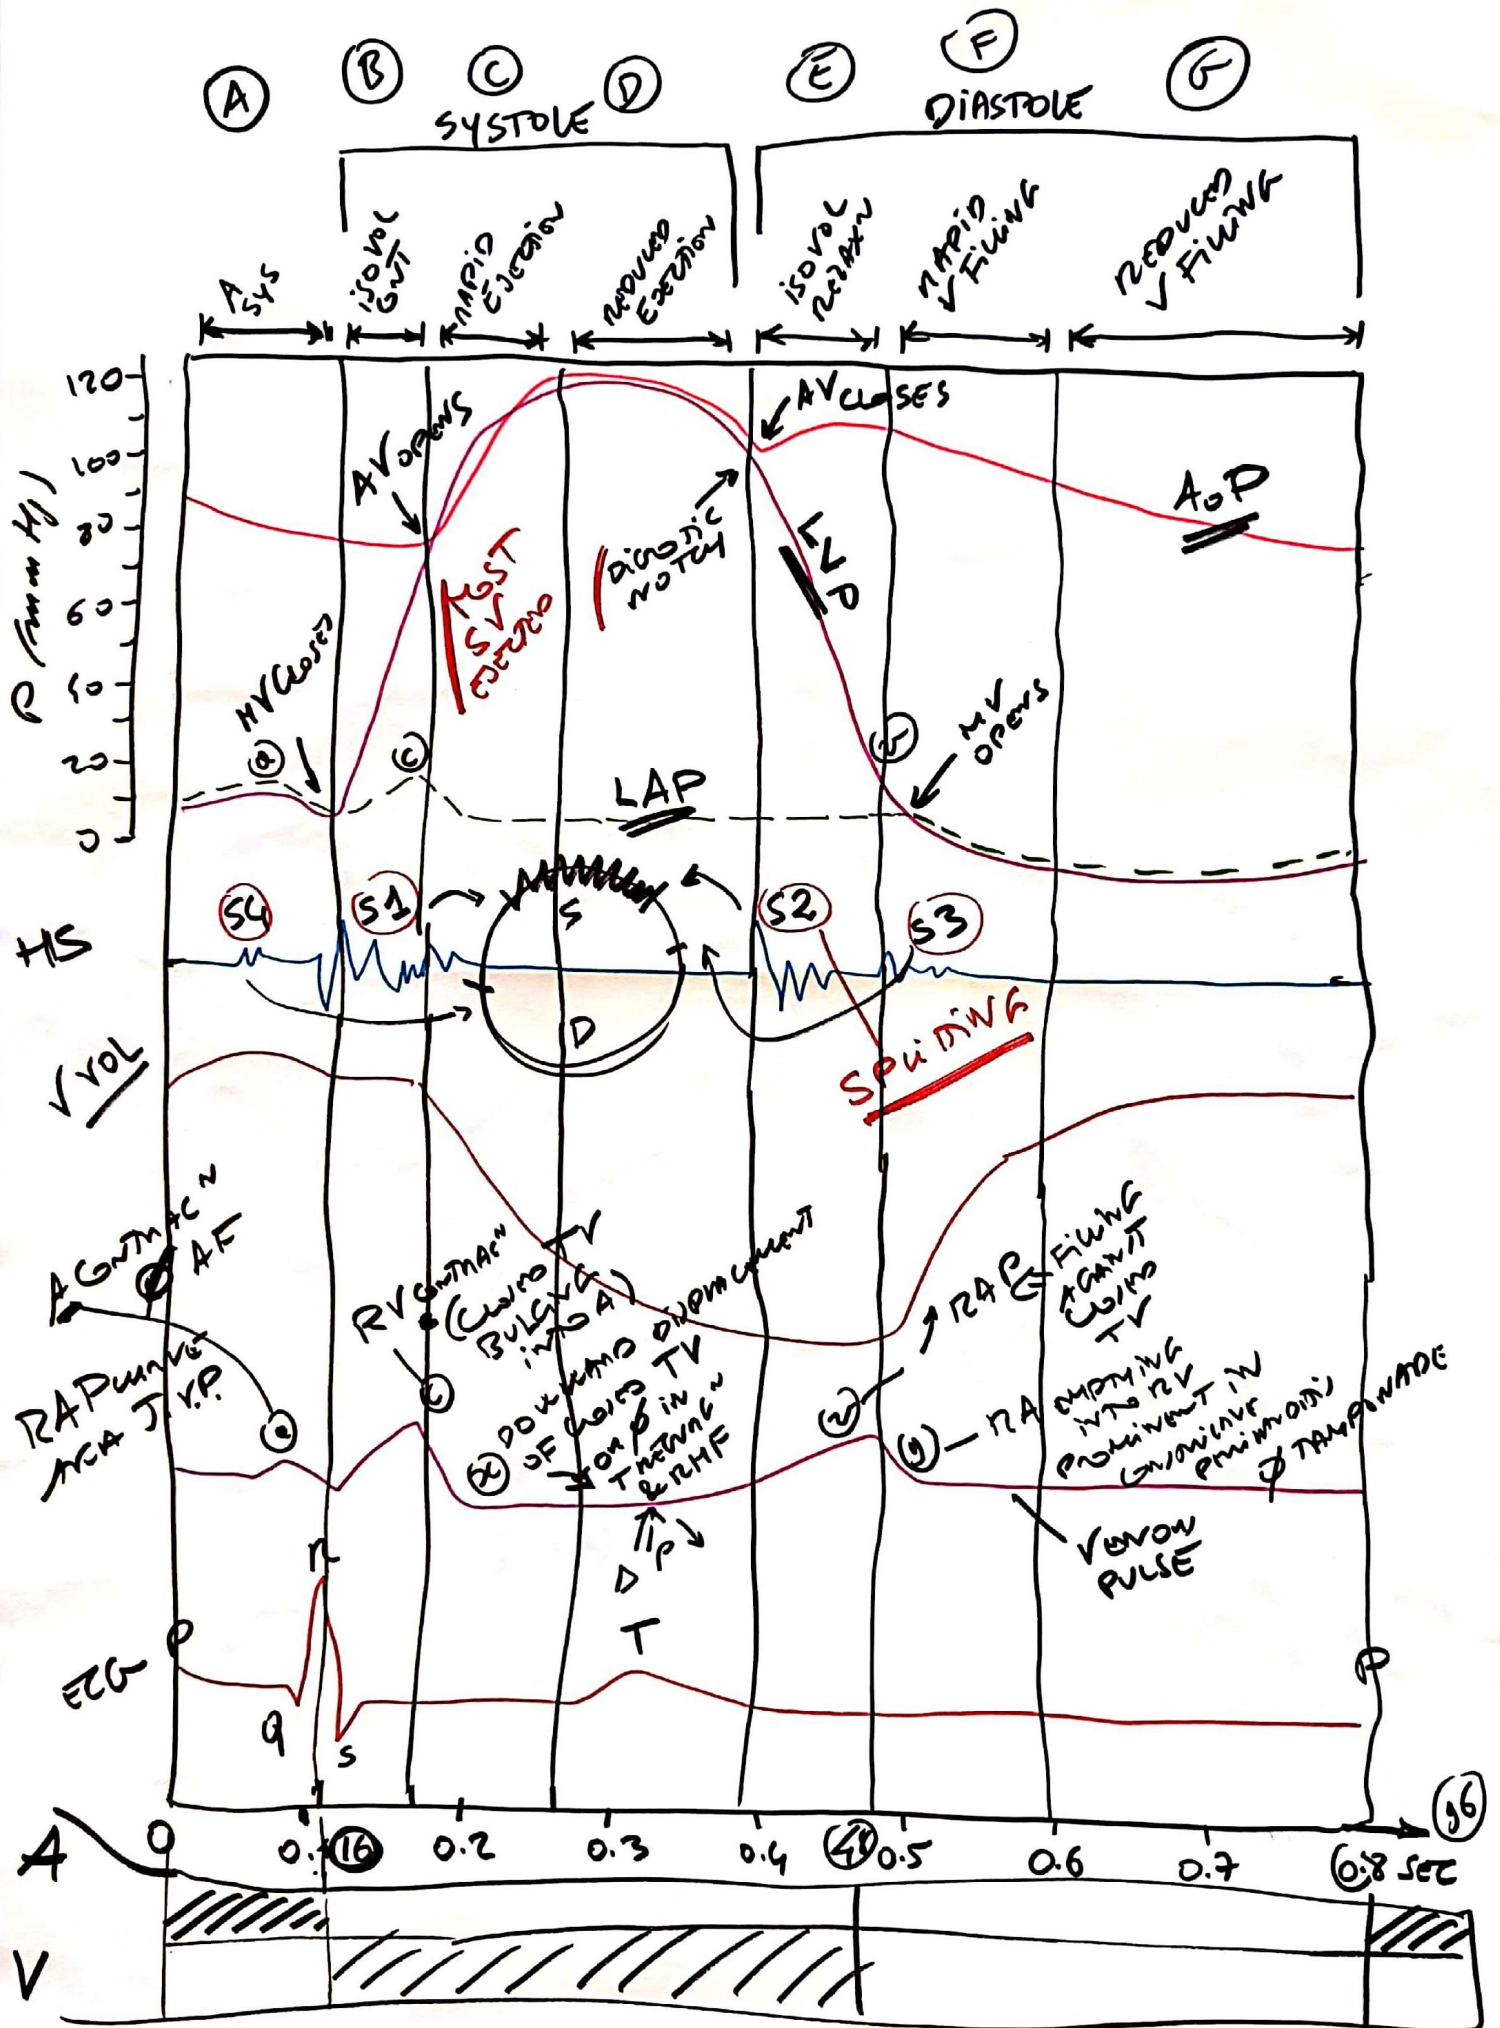 A
B
C
D
E
F
G
SYSTOLE
DIASTOLE
A
SYS
ISOVOL
CONT
RAPID
EJECTION
REDUCED
EJECTION
ISOVOL
RELAXN
RAPID
V FILLING
REDUCED
V FILLING
P (mm Hg)
120
100
80
60
40
20
0
AV OPENS
AV CLOSES
AoP
MOST
SV
EJECTED
DICROTIC
NOTCH
LVP
MV CLOSES
a
c
v
MV
OPENS
LAP
HS
S4
S1
S
D
S2
S3
SPLITTING
V VOL
A CONTRACN
AF
RAP CURVE
AKA J.V.P.
a
RV CONTRACN
(CLOSED TV
BULGING
INTO A)
c
x
DOWNWARD DISPLACEMENT
OF CLOSED TV
IN
& RHF
v
RAP
FILLING
AGAINST
CLOSED
TV
y
RA EMPTYING
INTO RV
PROMINENT IN
TAMPONADE
PULSE
ECG
P
Q
R
S
T
P
A
0
0.1
16
0.2
0.3
0.4
48
0.5
0.6
0.7
0.8 SEC
96
V